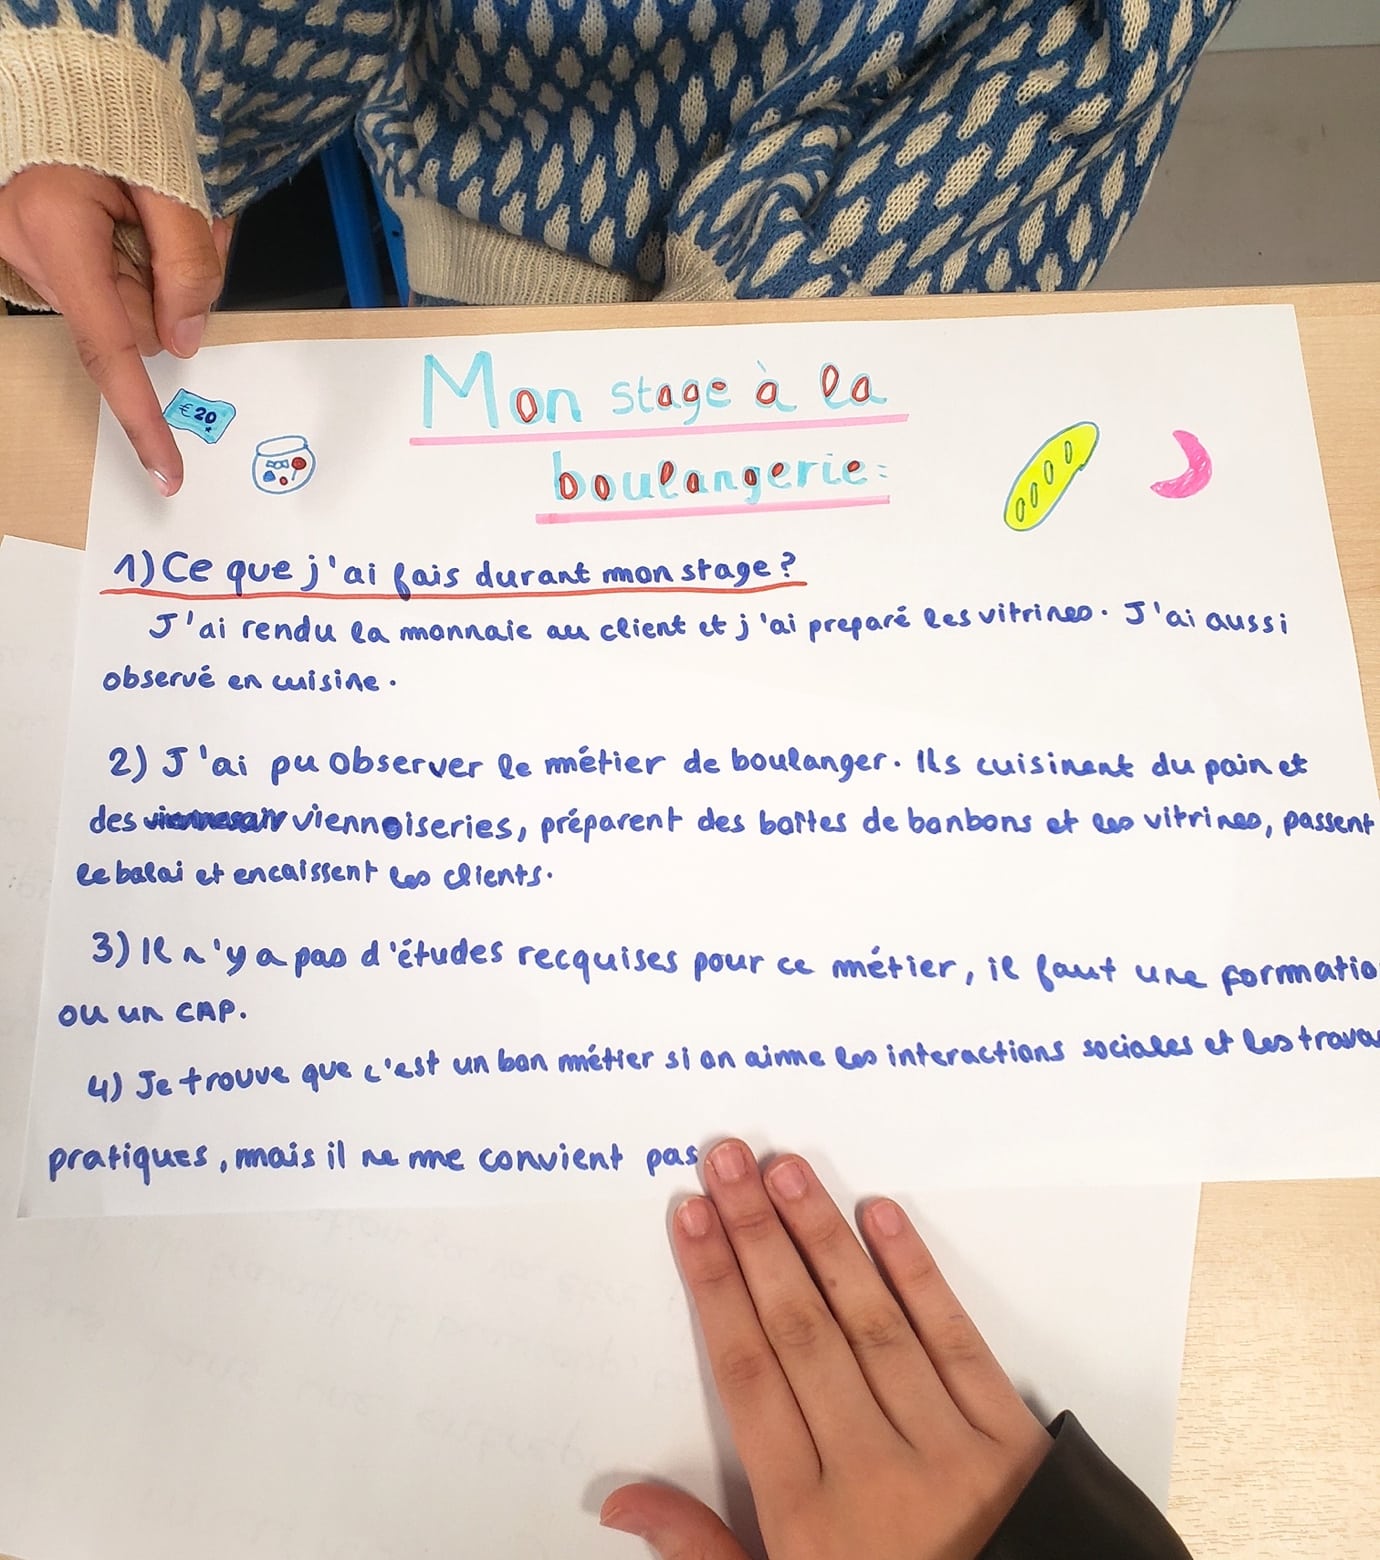 €20
Mon stage à la
boulangerie:
1) Ce que j'ai fais durant mon stage?
J'ai rendu la monnaie au client et j'ai preparé les vitrines. J'ai aussi
observé en cuisine.
2) J'ai pu observer le métier de boulanger. Ils cuisinent du pain et
des viennoiseries, préparent des boîtes de bonbons et les vitrines, passent
le balai et encaissent les clients.
3) Il n'y a pas d'études recquises pour ce métier, il faut une formatio
ou un CAP.
4) Je trouve que c'est un bon métier si on aime les interactions sociales et les travau
pratiques, mais il ne me convient pas